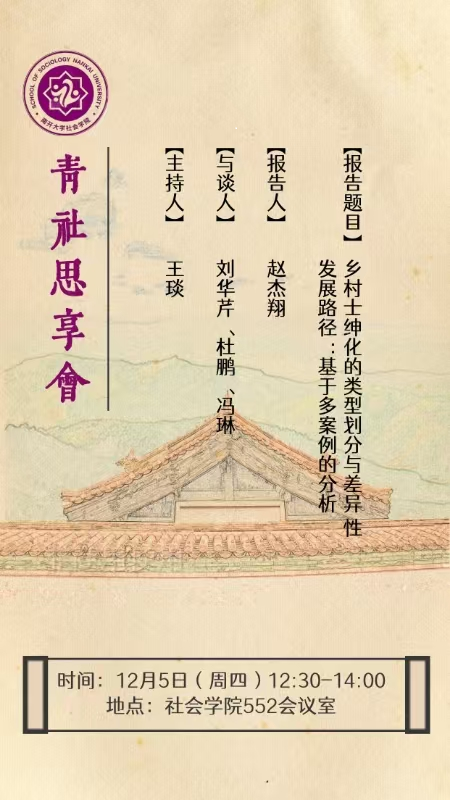 SCHOOL OF SOCIOLOGY NANKAI UNIVERSITY
南开大学社会学院
青社思享會
【报告题目】 乡村士绅化的类型划分与差异性
发展路径：基于多案例的分析
【报告人】 赵杰翔
【与谈人】 刘华芹、杜鹏、冯琳
【主持人】 王琰
时间：12月5日（周四）12:30-14:00
地点：社会学院552会议室